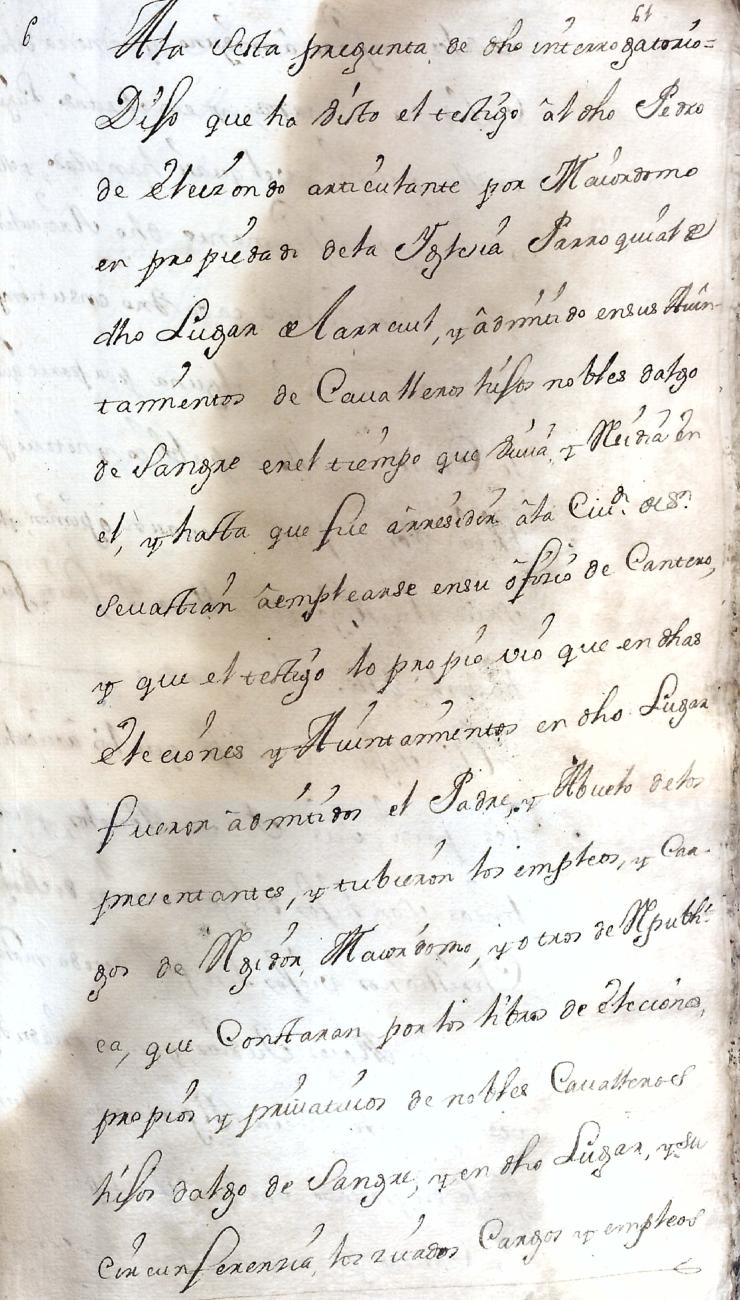 19
6 A la sesta pregunta de dho interrogatorio=
Dijo que ha visto el testigo âl dho Pedro
de Eleizondo articulante por Maiordomo
en propiedad de la Yglesia Parroquial de
dho Lugar de Larraul, y âdmitido en sus Aiun-
tamientos de Cavalleros hijos nobles dalgo
de Sangre en el tiempo que viuia, y Residia en
el, y hasta que fue ârresidir âla Ciud. de Sn.
Sevastian âemplearse en su ôfizio de Cantero,
y que el testigo lo propio vio que en dhas
Eleciones y Aiuntamientos en dho Lugar
fueron âdmitidos el Padre, y Abuelo de los
presentantes, y tubieron los empleos, y Car-
gos de Rexidor, Maiordomo, y otros de Republi-
ca, que Constaran por los libros de Eleciones,
propios y privativos de nobles Cavalleros
hijos dalgo de Sangre, y en dho Lugar, y su
Circunferenzia, los zitados Cargos y empleos